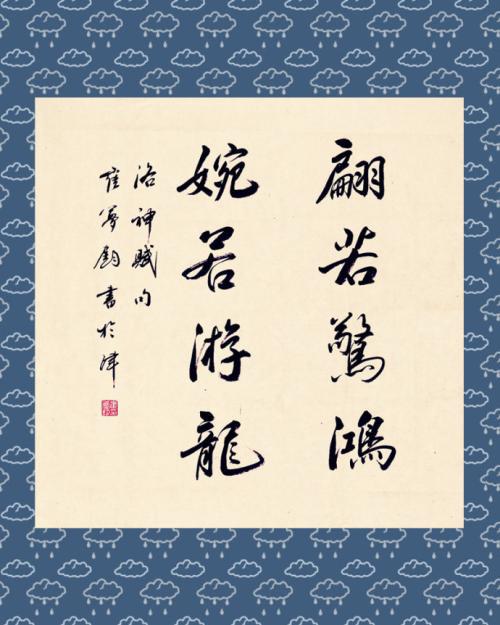 翩若驚鴻
婉若游龍
洛神賦句
崔書於津